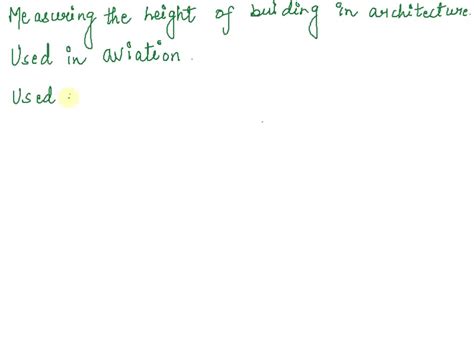 Measuring the height of building in architecture.
Used in aviation.
Used